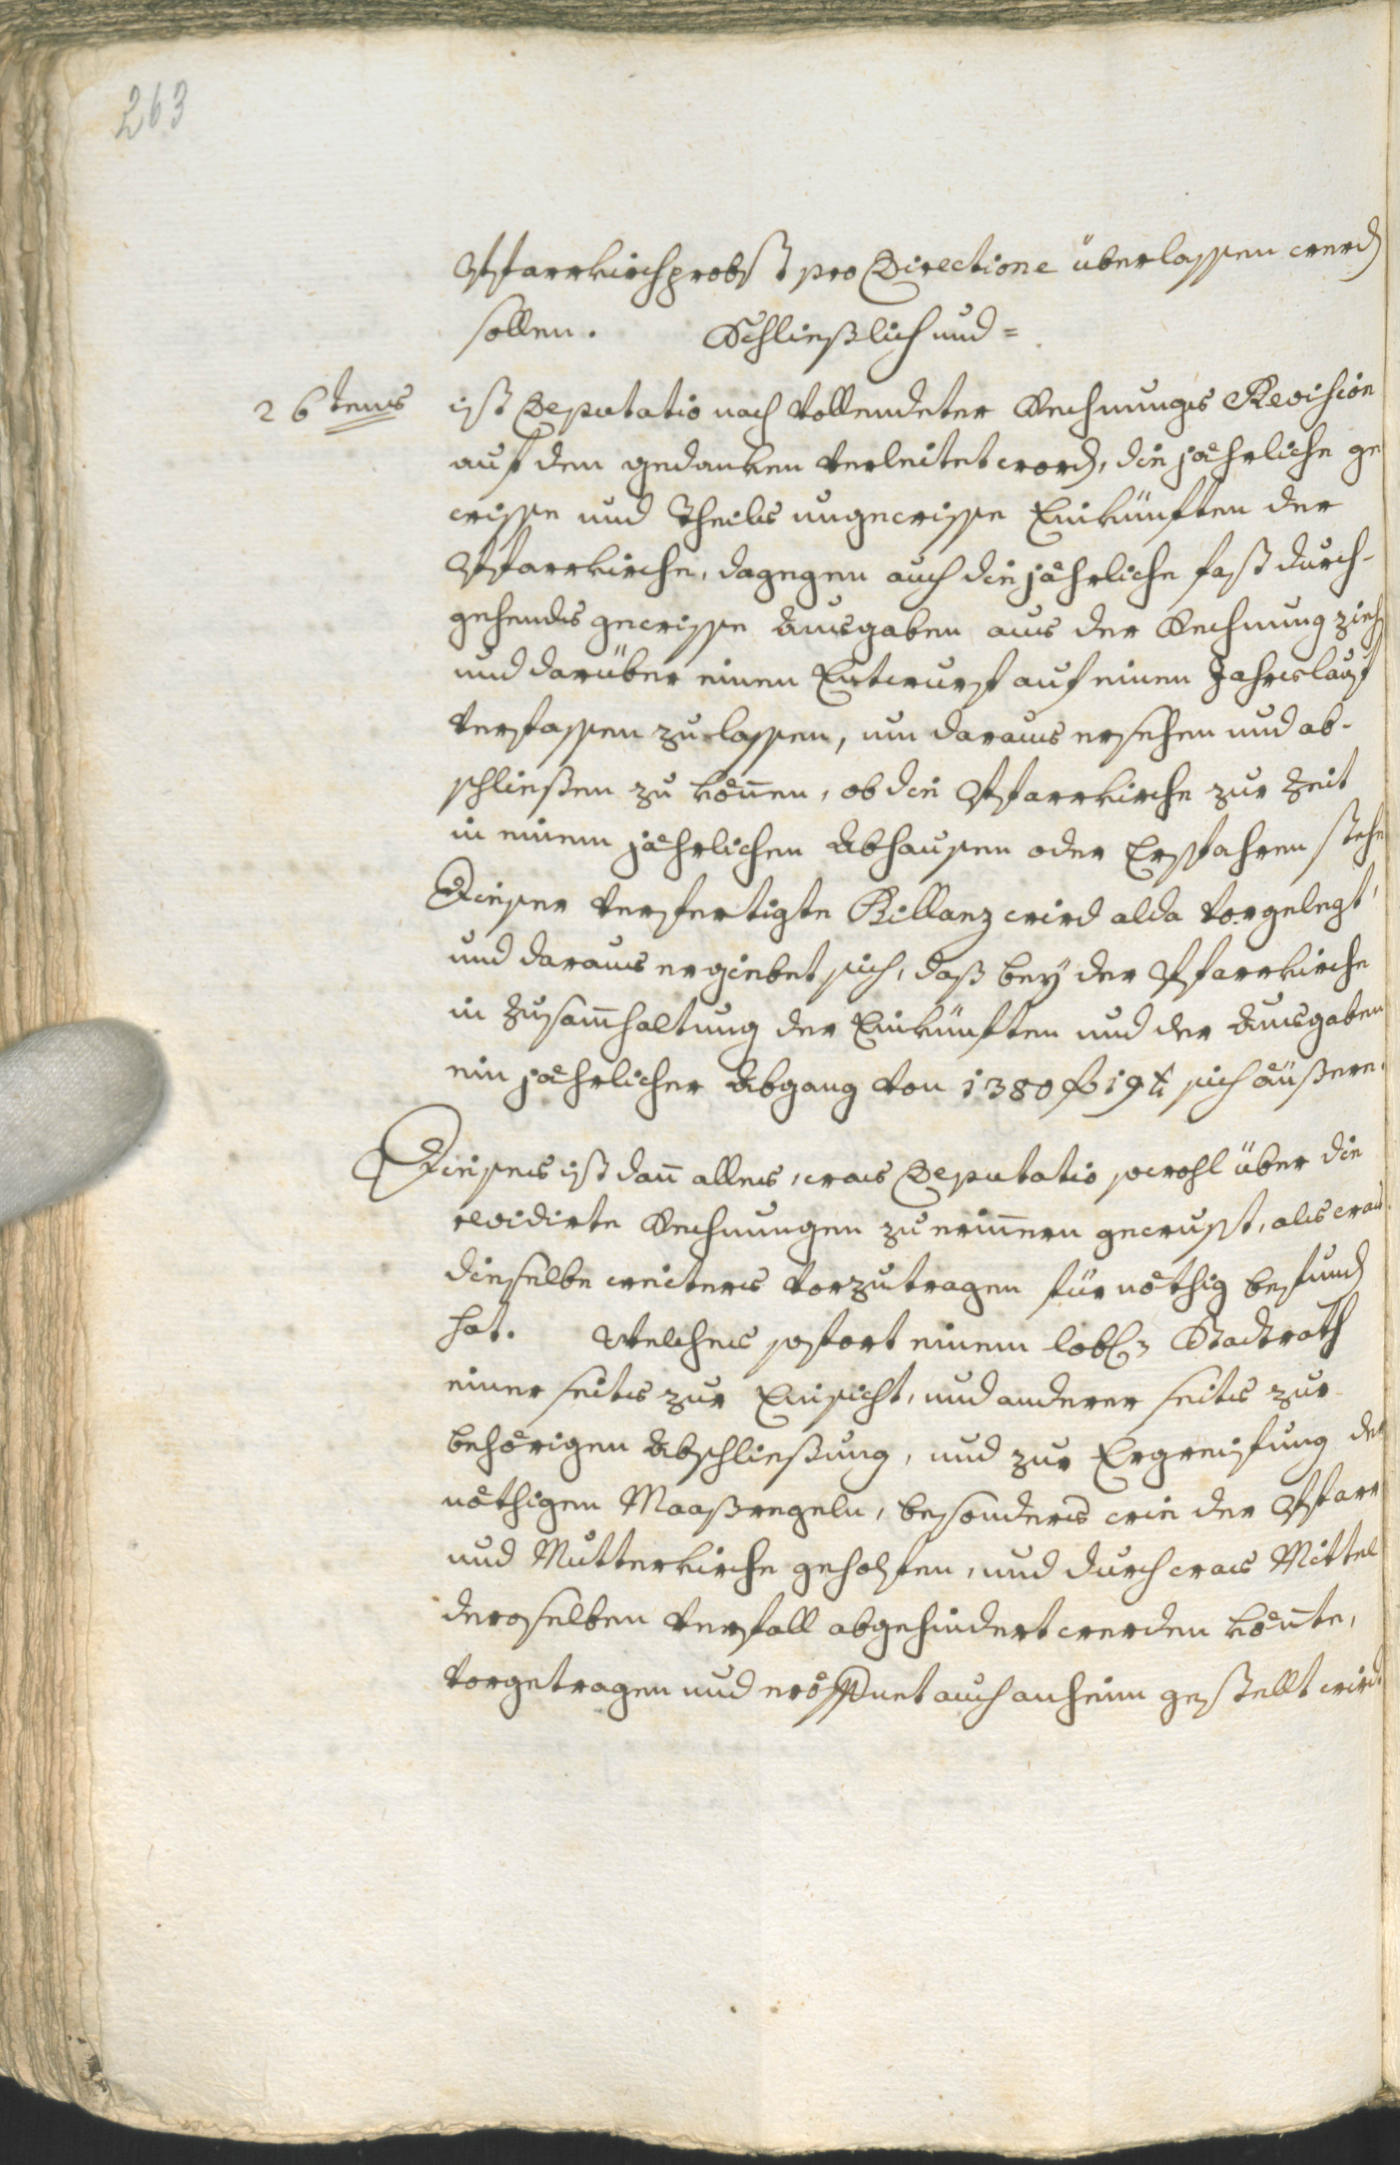 263
Pfarrkirchprobst pro Directione überlassen werd
sollen. Schließlich und =
26tens ist Deputatio nach vollendeter Rechnungs Revision
auf den gedanken verleitet word, die jährliche ge
wisse und theils ungewisse Einkünften der
Pfarrkirche, dagegen auch die jährliche fast durch-
gehends gewisse Ausgaben aus der Rechnung zieh
und darüber einen Entwurf auf einen Jahrslauf
verfassen zu lassen, um daraus ersehen und ab-
schließen zu könen, ob die Pfarrkirche zur Zeit
in einem jährlichen Abhausen oder Ersfahren stehe
Dieser verfertigte Billanz wird alda vorgelegt,
und daraus ergiebet sich, daß bey der Pfarrkirche
in Zusamhaltung der Einkünften und der Ausgaben
ein jährlicher Abgang von 1380 f 19 x sich äußere.
Dieses ist dan alles, was Deputatio sowohl über die
revidirte Rechnungen zu erinern gewust, als was
dieselbe weiters vorzutragen für nöthig befund
hat. Welches sofort einem lobl. Stadtrath
einer seits zur Einsicht, und anderer seits zur
behörigen Abschließung, und zur Ergreifung der
nöthigen Maaßregeln, besonders wie der Pfarr
und Mutterkirche geholfen, und durch was Mittel
deroselben Verfall abgehindert werden könte,
vorgetragen und eröffnet auch anheim gestellt wird.